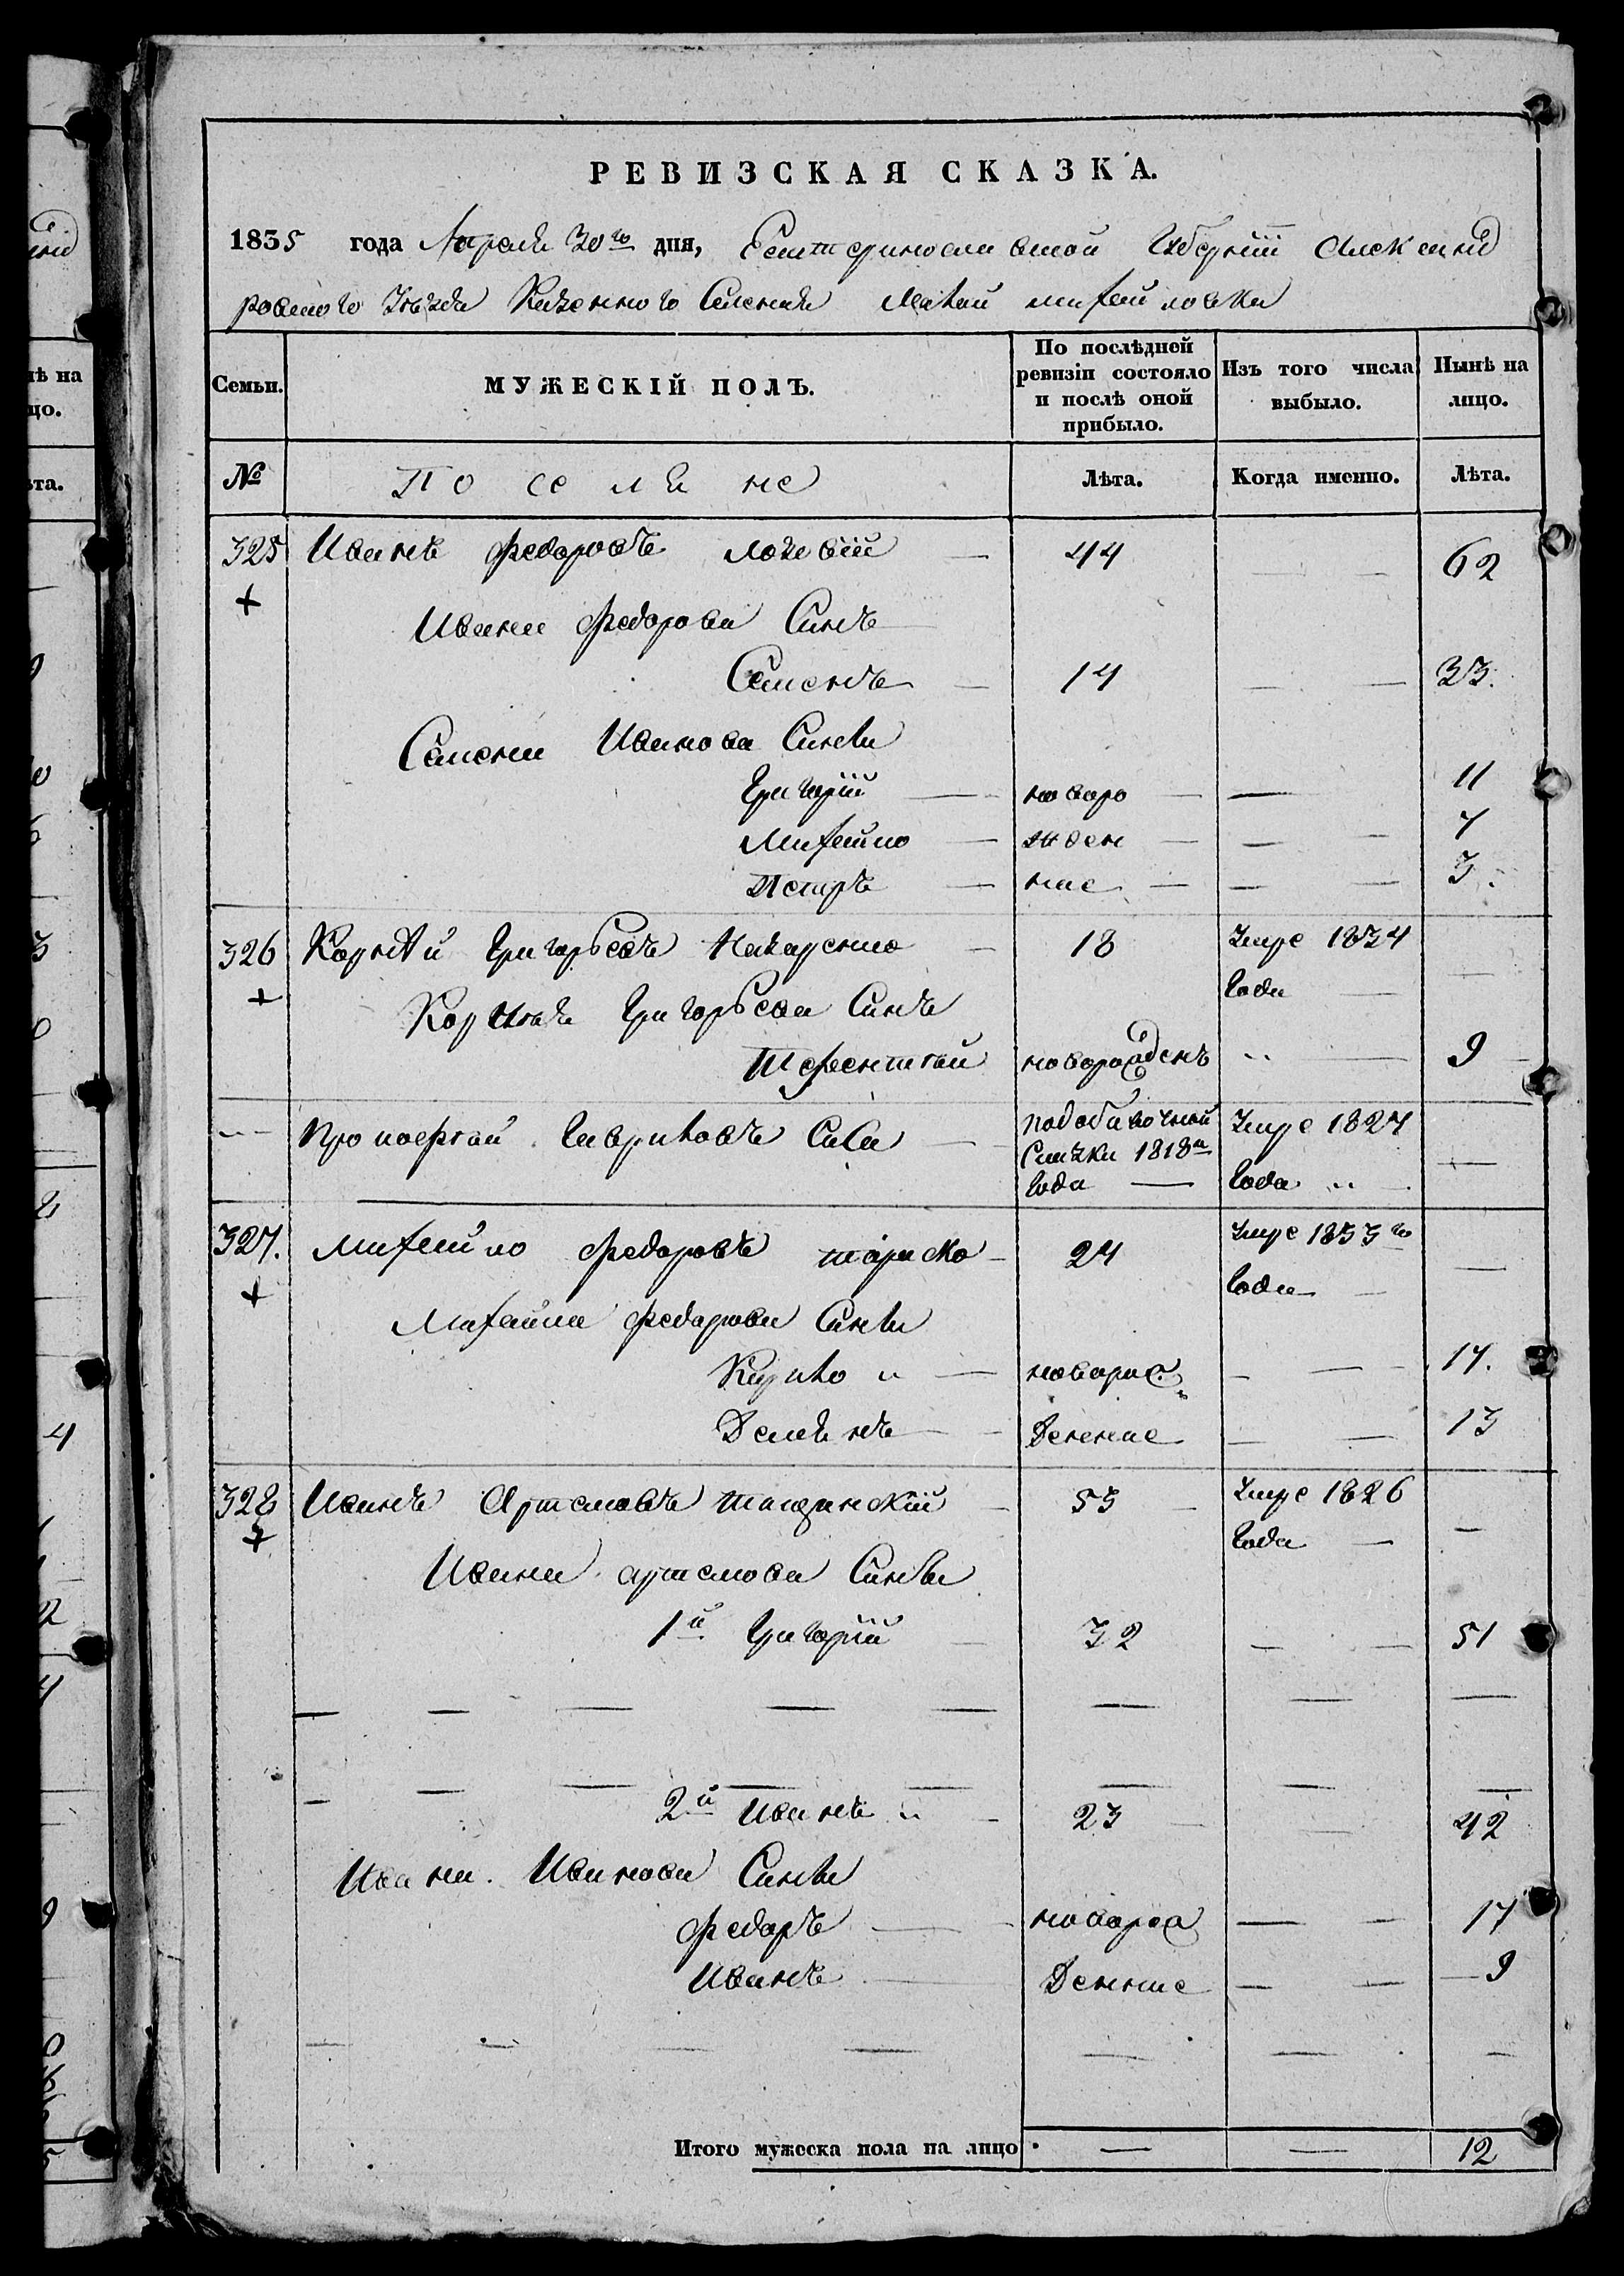 РЕВИЗСКАЯ СКАЗКА.
1835 года Апреля 30го дня, Екатеринославской Губернии Александ
ровского Уезда Казенного Селения Малой михайловки
Семьи. МУЖЕСКІЙ ПОЛЪ. По послѣдней ревизіи состояло и послѣ оной прибыло. Изъ того числа выбыло. Нынѣ на лицо.
№ Поселяне Лѣта. Когда именно. Лѣта.
325 Иванъ федоровъ 44 — 62
Ивана федорова Синъ
Семенъ — 14 — — 33.
Семена Иванова Сини
Григорій — новоро — — 11
Михайло — жден — — 7
Петръ — ние — — — 3.
326 Корнѣй Григорьевъ — 18 Умре 1834 —
года —
Корнѣя Григорьева Синъ
новорожденъ — 9
Прокофій Гавриловъ — подобавочной Умре 1827
Скаски 1818го —
года — года
327. Михайло федоровъ — 24 Умре 1833го —
года —
Михайла федорова Сини
Кирило — новорож — — 17.
Демянъ — дение — — 13
328 Иванъ Артемовъ — 53 — Умре 1826
года — —
Ивана артемова Сини
1й Григорій — 32 — — 51
2й Иванъ — 23 — 42
Ивана Иванова Сини
федоръ — новорож — — 17
Иванъ — дение — — 9
Итого мужеска пола на лицо — — 12